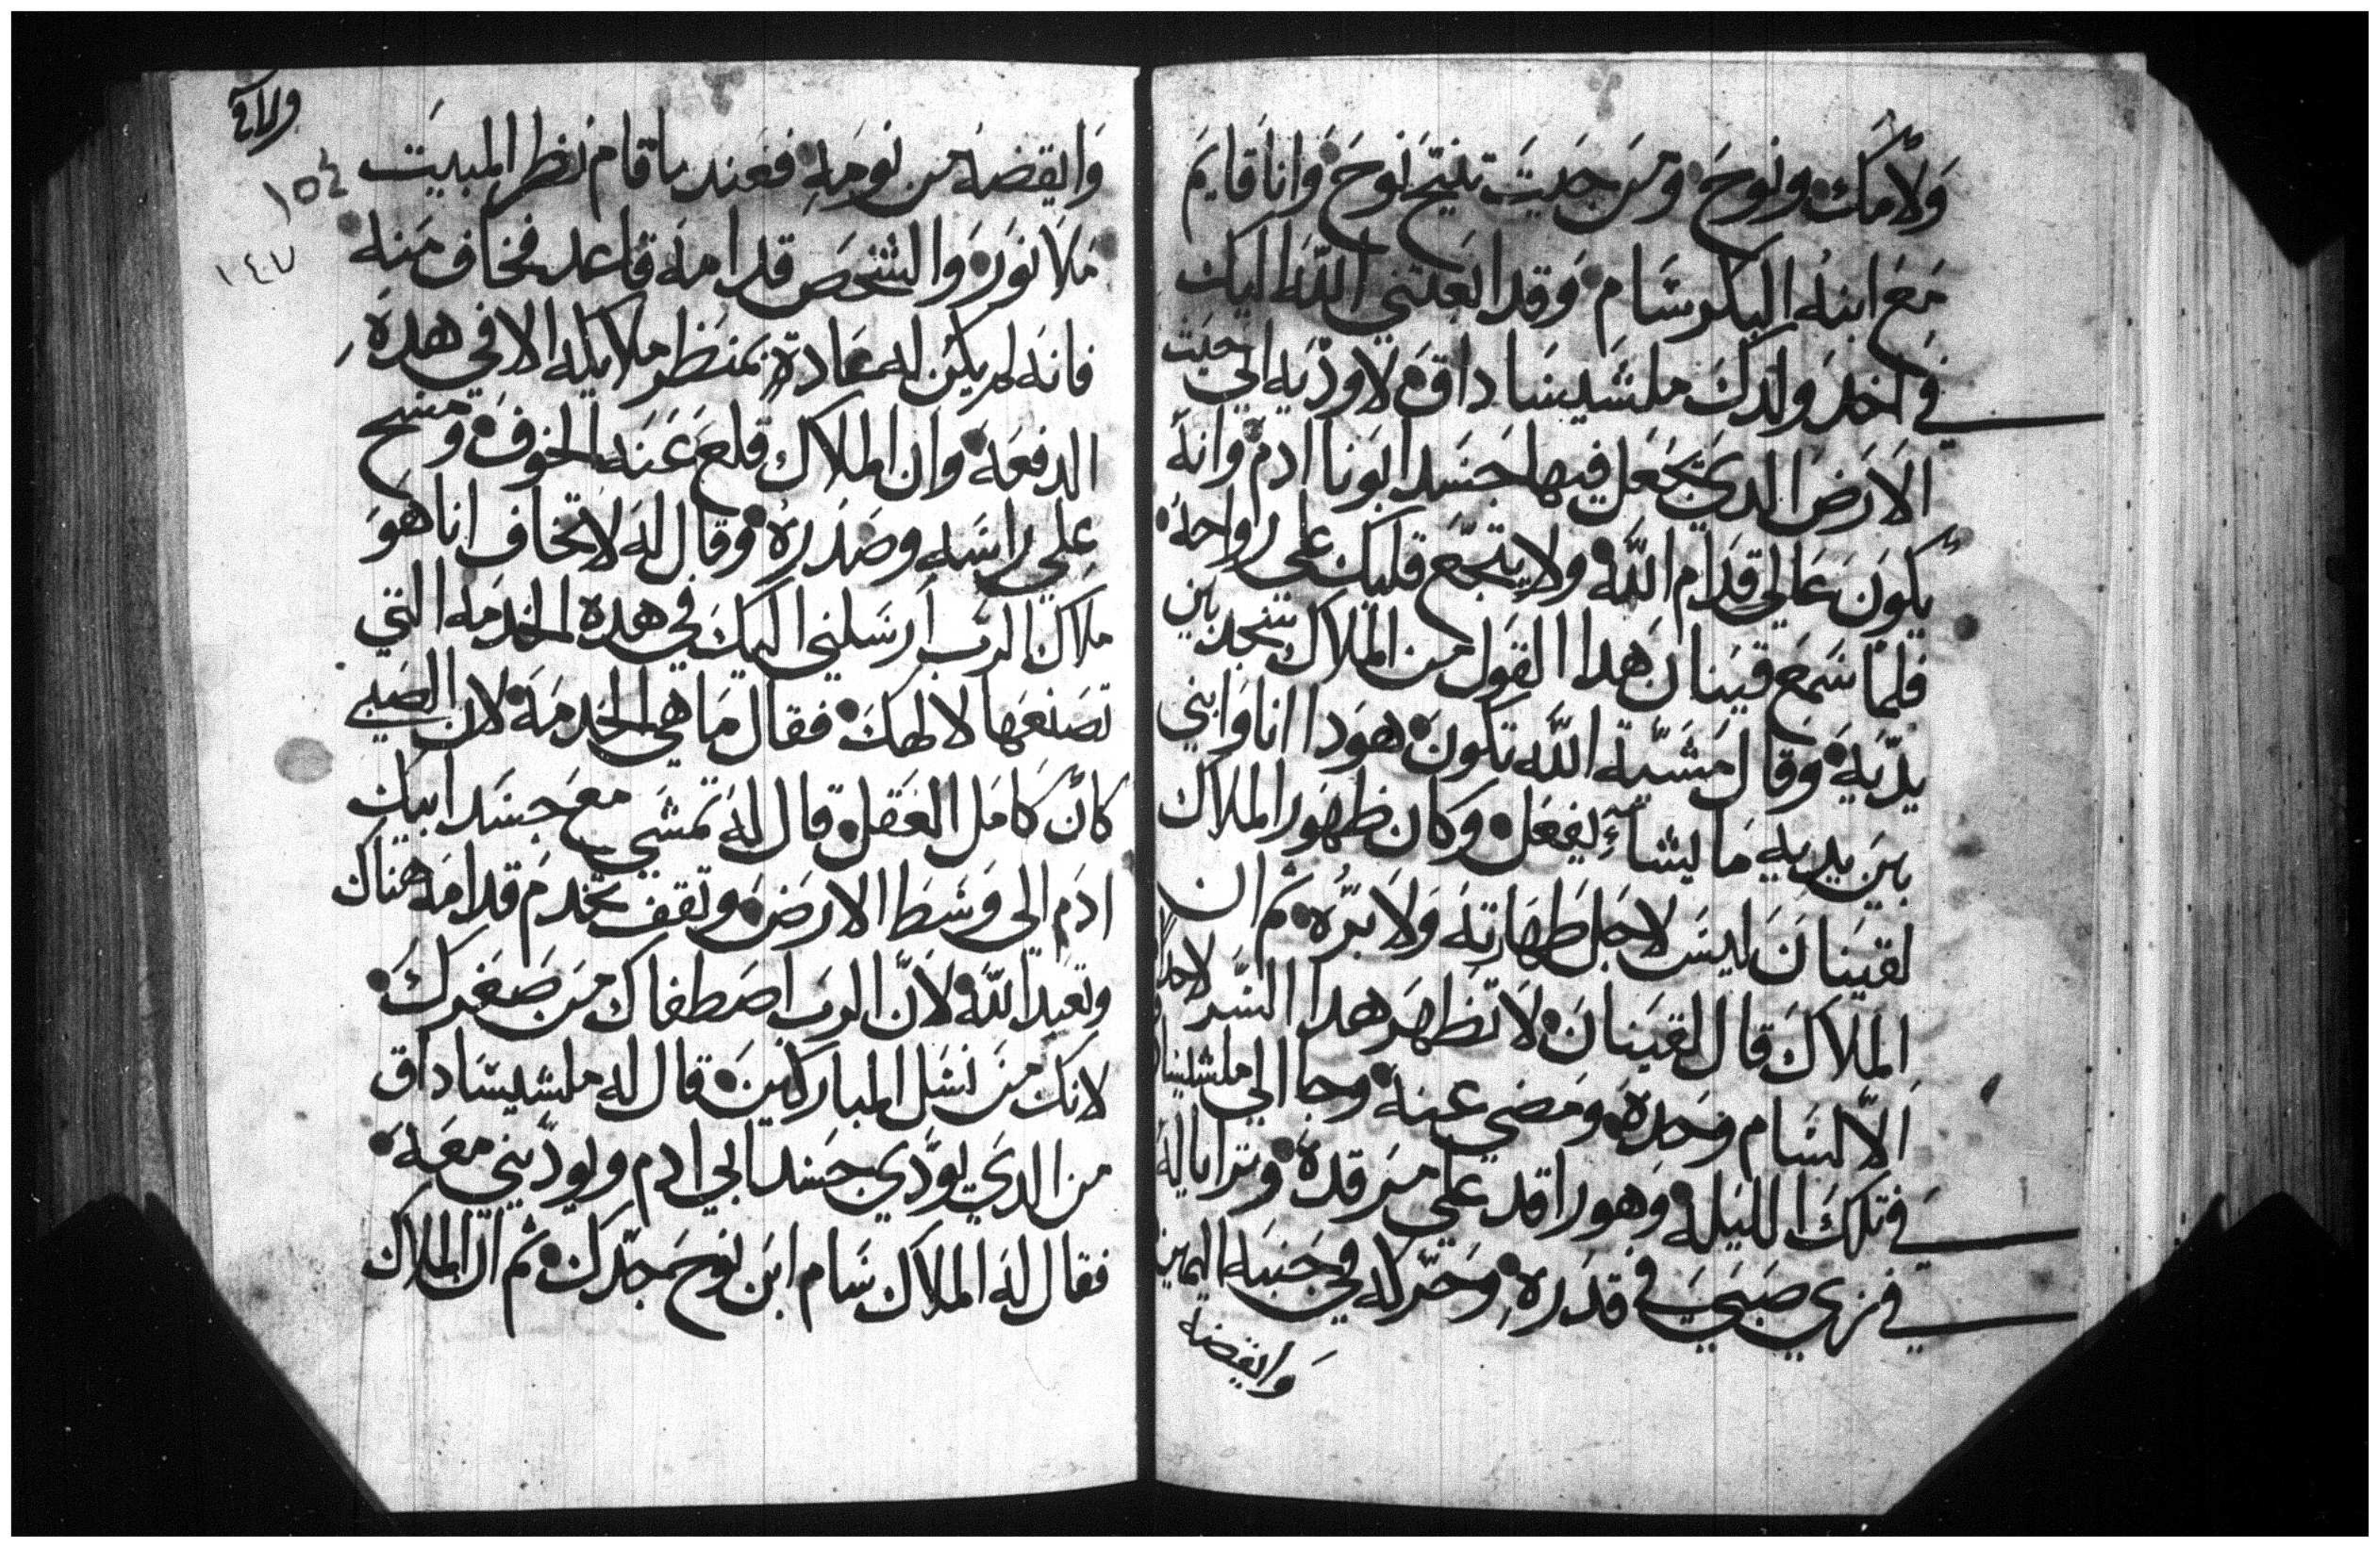 ولامك ونوح ومن حيت تنيح نوح وانا قايم
مع ابنه البكر سام وقد ابعتني الله اليك
في اخد ولدك ملشيساداق لاوديه الي حيت
الارض الدي يجعل فيها جسد ابونا ادم وانه
يكون عالي قدام الله ولا يتجع قلبك علي رواحه
فلما سمع قينان هدا القول من الملاك سجد بين
يديه وقال مشية الله تكون هودا انا وابني
بين يديه ما يشاء يفعل وكان ظهور الملاك
لقينان ليس لاجل طهارته ولا بره ثم ان
الملاك قال لقينان لا تظهر هدا السر لاحد
الا لسام وحده ومضي عنه وجا الي ملشيسا
في تلك الليله وهو راقد علي مرقده وترايا له
في زي صبي في قدره وحركه في جنبه اليمين
وايقضه
وايقضه من نومه فعند ما قام نظر المبيت
ملا نور والشخص قدامه قاعد فخاف منه
فانه لم يكن له عادة بمنظر ملايكه الا في هده
الدفعه وان الملاك قلع عنه الخوف ومسح
علي راسه وصدره وقال له لا تخاف انا هو
ملاك الرب ارسلني اليك في هده الخدمه التي
تصنعها لالهك فقال ما هي الخدمه لان الصبي
كان كامل العقل قال له تمشي مع جسد ابيك
ادم الي وسط الارض وتقف تخدم قدامه هناك
وتعبد الله لان الرب اصطفاك من صغرك
لانك من نسل المباركين قال له ملشيساداق
من الدي يودي جسد ابي ادم ويوديني معه
فقال له الملاك سام ابن نوح جدك ثم ان الملاك
١٥٤
١٤٧